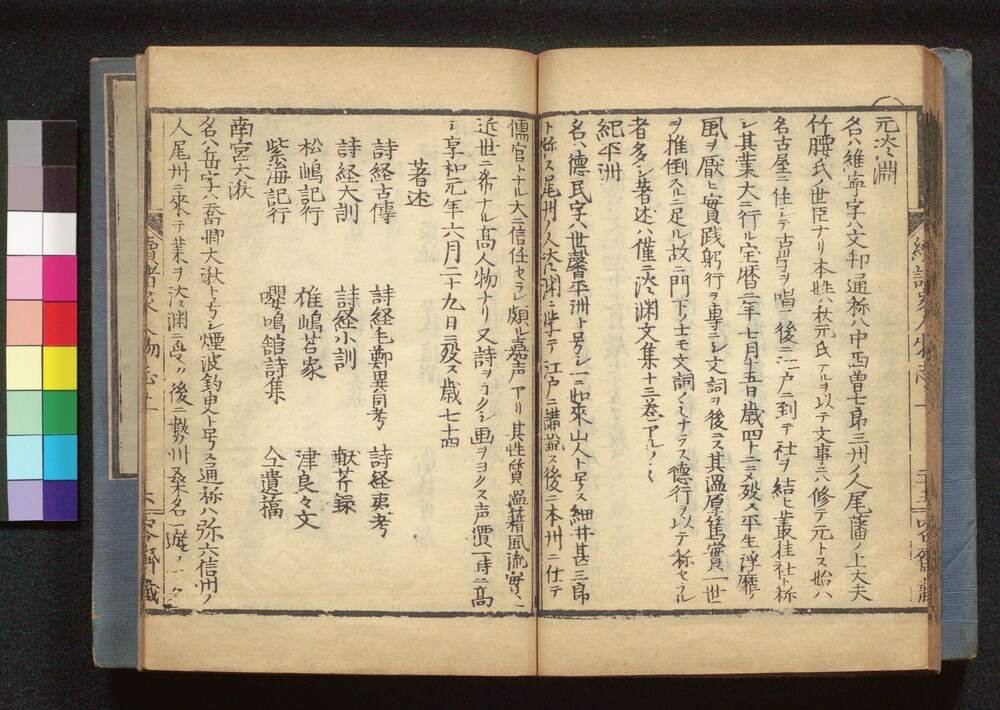 元淡淵
名ハ維寧字ハ文邦通称ハ中西曽七郎三州ノ人尾藩ノ上大夫
竹腰氏ノ世臣ナリ本姓ハ秋元氏ナルヲ以テ文事ニハ修テ元トス始ハ
名古屋ニ住シテ古学ヲ唱ヘ後ニ江戸ニ到テ社ヲ結ヒ叢桂社ト称
シ其業大ニ行ル宝暦二年七月十五日歳四十二ニメ殁ス平生浮靡ノ
風ヲ厭ヒ實践躬行ヲ専ニシ文詞ヲ後ニス其温厚篤實一世
ヲ推倒スルニ足ル故ニ門下ノ士モ文詞ノミナラス德行ヲ以テ称セラル
者多シ著述ハ僅ニ淡淵文集十三巻アルノミ
紀平洲
名ハ德民字ハ世馨平洲ト号シ一ニ如來山人ト号ス細井甚三郎
ト称ス尾州ノ人淡淵ニ学テ江戸ニ講説ス後ニ本州ニ仕テ
儒官トナル大ニ信任セラレ頗ル嘉声アリ其性質温藉風流實ニ
近世ニ希ナル高人物ナリ又詩ヲヨクシ画ヲヨクス声價一時ニ高
シ享和元年六月二十九日ニ殁ス歳七十四
著述
詩経古傳 詩経毛鄭異同考 詩経夷考
詩経大訓 詩経小訓 献芹録
松嶋記行 雄嶋苔家 津良々文
紫海記行 嚶鳴舘詩集 仝遺稿
南宮大湫
名ハ岳字ハ喬卿大湫ト号シ煙波釣叟ト号ス通称ハ弥六信州ノ
人尾州ニ來テ業ヲ淡淵ニ受ク後ニ勢州桑名ニ
續諸家人物志 上